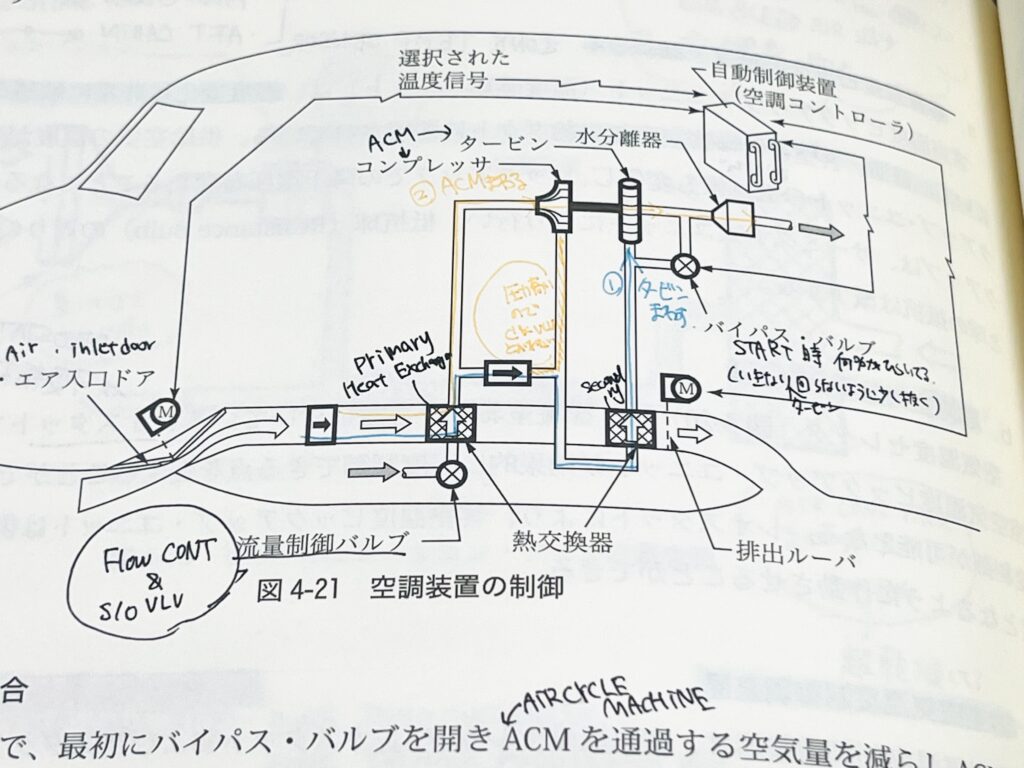 選択された
温度信号
自動制御装置
(空調コントローラ)
ACM → タービン
水分離器
コンプレッサ
② ACMまわる
① タービン
まわす
バイパス・バルブ
START時 何%かひらいてる。
タービン
Air . inlet door
・エア入口ドア
M
Primary
Heat Exchange
second
M
Flow CONT
&
S/O VLV
流量制御バルブ
熱交換器
排出ルーバ
図 4-21 空調装置の制御
合
AIRCYCLE
MACHINE
で、最初にバイパス・バルブを開き ACM を通過する空気量を減らし